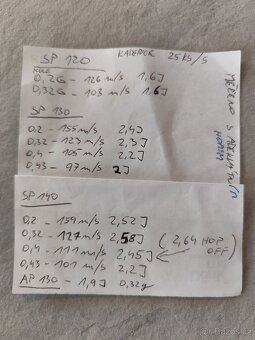 SP 120 KADENCE 25KS/S
KULE
0,2G - 126 m/s 1,6J
0,32G - 103 m/s 1.6J
SP 130
0,2 - 155 m/s 2,4J
0,32 - 123 m/s 2,3J
0,4 - 105 m/s 2,2J
0,43 - 97 m/s 2J
SP 140
0,2 - 159 m/s 2,52J
0,32 - 127 m/s 2,58J (2,64 HOP OFF)
0,4 - 111 m/s 2,45J
0,43 - 101 m/s 2,2J
AP 130 - 1,9J 0,32g
MĚŘENO S